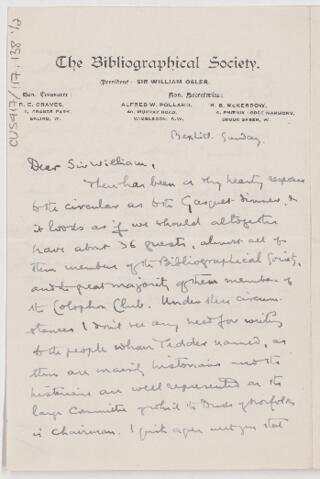 CUS417/117.138 1/2
The Bibliographical Society.
President: SIR WILLIAM OSLER.
Hon. Treasurer:
Hon. Secretaries:
R. E. GRAVES,
ALFRED W. POLLARD,
R. B. McKERROW,
GRANGE PARK,
40, MURRAY ROAD,
4, PHŒNIX LODGE MANSIONS,
EALING, W.
WIMBLEDON, S.W.
BROOK GREEN, W.
Sunday.
Dear Sir William,
There has been a very hearty response
to the circular as to the Gasquet dinner, &
it looks as if we should altogether
have about 36 guests, almost all of
them members of the Bibliographical Society,
and the great majority of them members of
the Colophon Club. Under these circum-
stances I don't see any need for writing
to the people whom Tedder named, as
they are mainly historians and the
historians are well represented on the
large Committee of which the Duke of Norfolk
is Chairman. I quite agree with you that